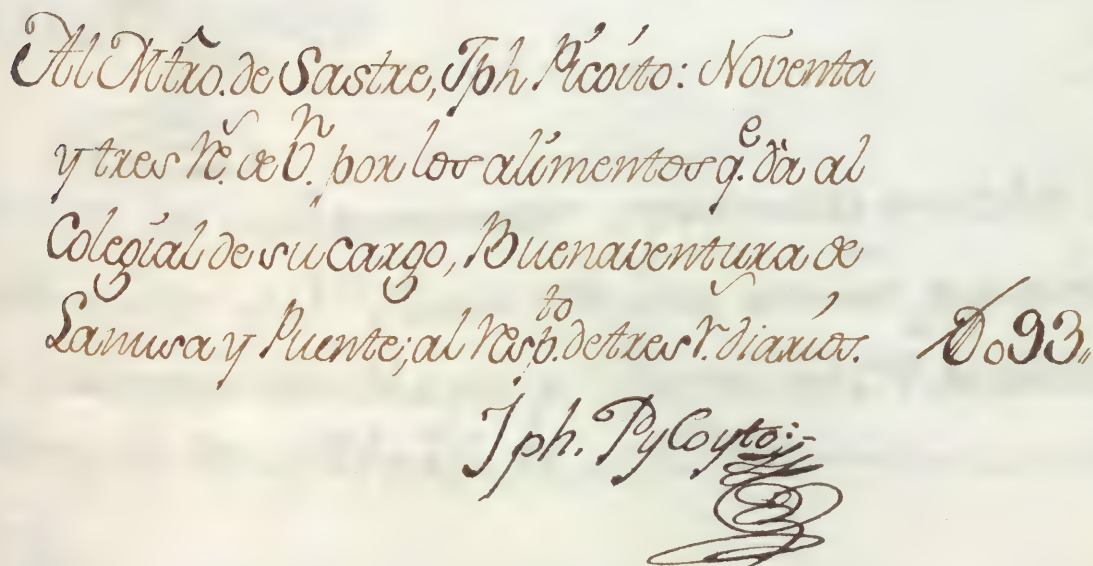 Al Mtrõ. de Sastre, Jph Picoito: Noventa
y tres Rẽ. de Vⁿ. por los alimentos q.ᵉ dà al
Colegial de su cargo, Buenaventura de
Lamusa y Puente; al Resp.ᵗᵒ de tres r.ˢ diarios. Do93„
Jph. PyCoyto:-